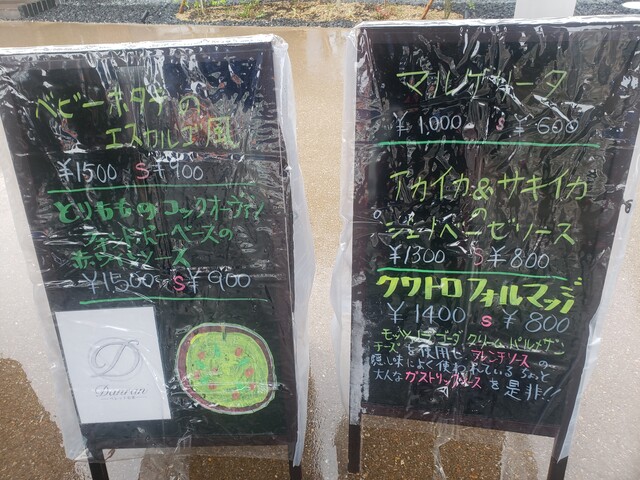 ベビーホタテの
エスカルゴ風
¥1500 S¥900
とりもものコックオーヴァン
フォンドボーベースの
ホワイトソース
¥1500 S¥900
D
マルゲリータ
¥1,000 S ¥600
アカイカ&サキイカ
の
ジェノベーゼソース
¥1300 S¥800
クワトロフォルマッジ
¥1400 S ¥800
クリーム、パルメザン
チーズを使用せ フレンチソースの
隠し味によく使われているちょっと
大人なガストリックソースを是非!!